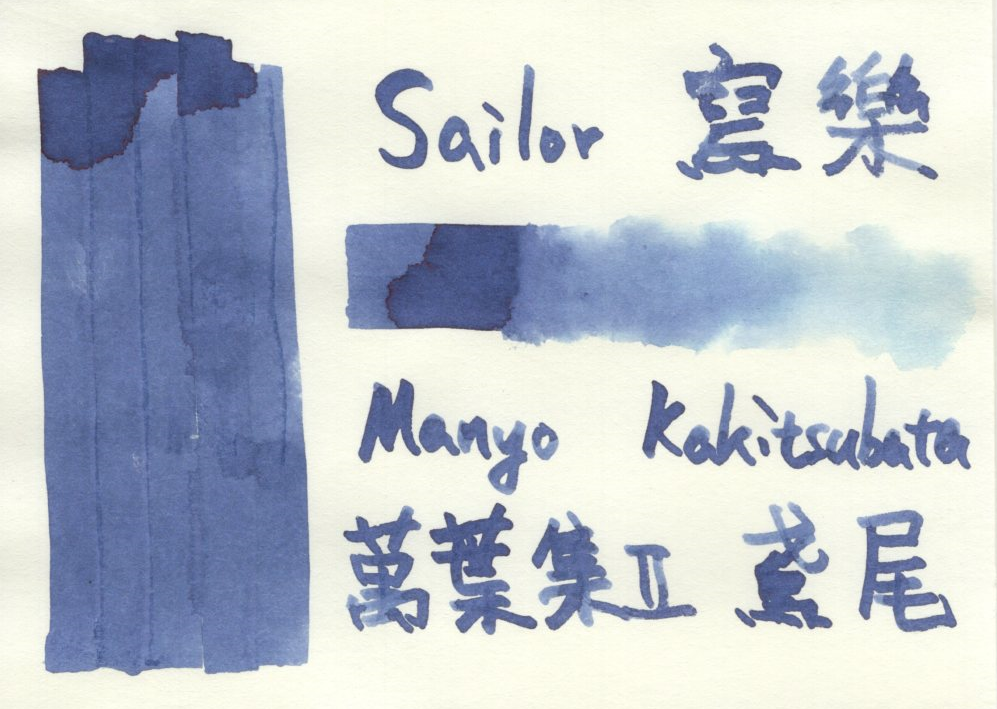 Sailor 寫樂
Manyo Kakitsubata
萬葉集II 鳶尾